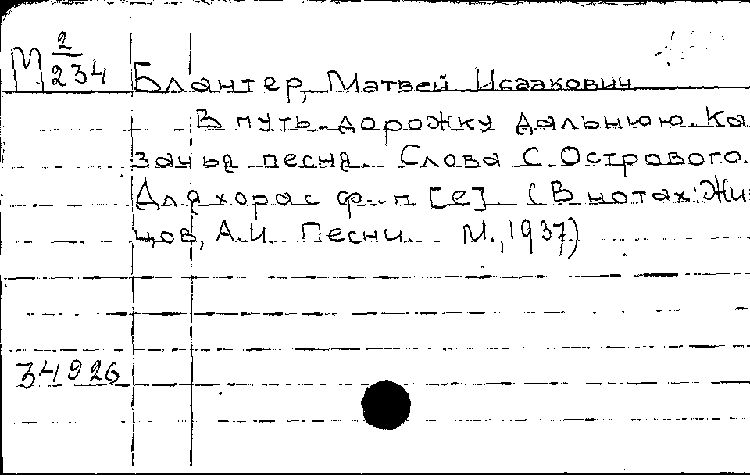 М 2/234
Блантер, Матвей Исаакович
В путь-дорожку дальнюю. Ка
зачья песня. Слова С. Острового.
Для хора с ф.-п [е]. (В нотах: Жи
цов, А.И. Песни. М., 1937.)
34926